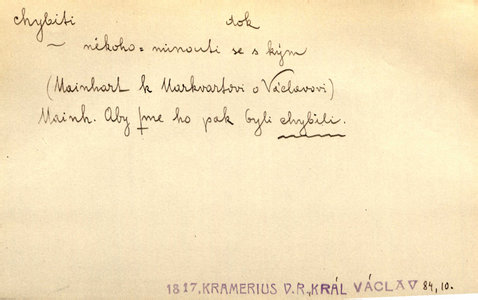 chybiti dok
~ někoho = minouti se s kým
(Mainhart k Markvartovi o Václavovi)
Mainh. Aby ſme ho pak byli chybili.
1817, KRAMERIUS V.R., KRÁL VÁCLAV 84, 10.